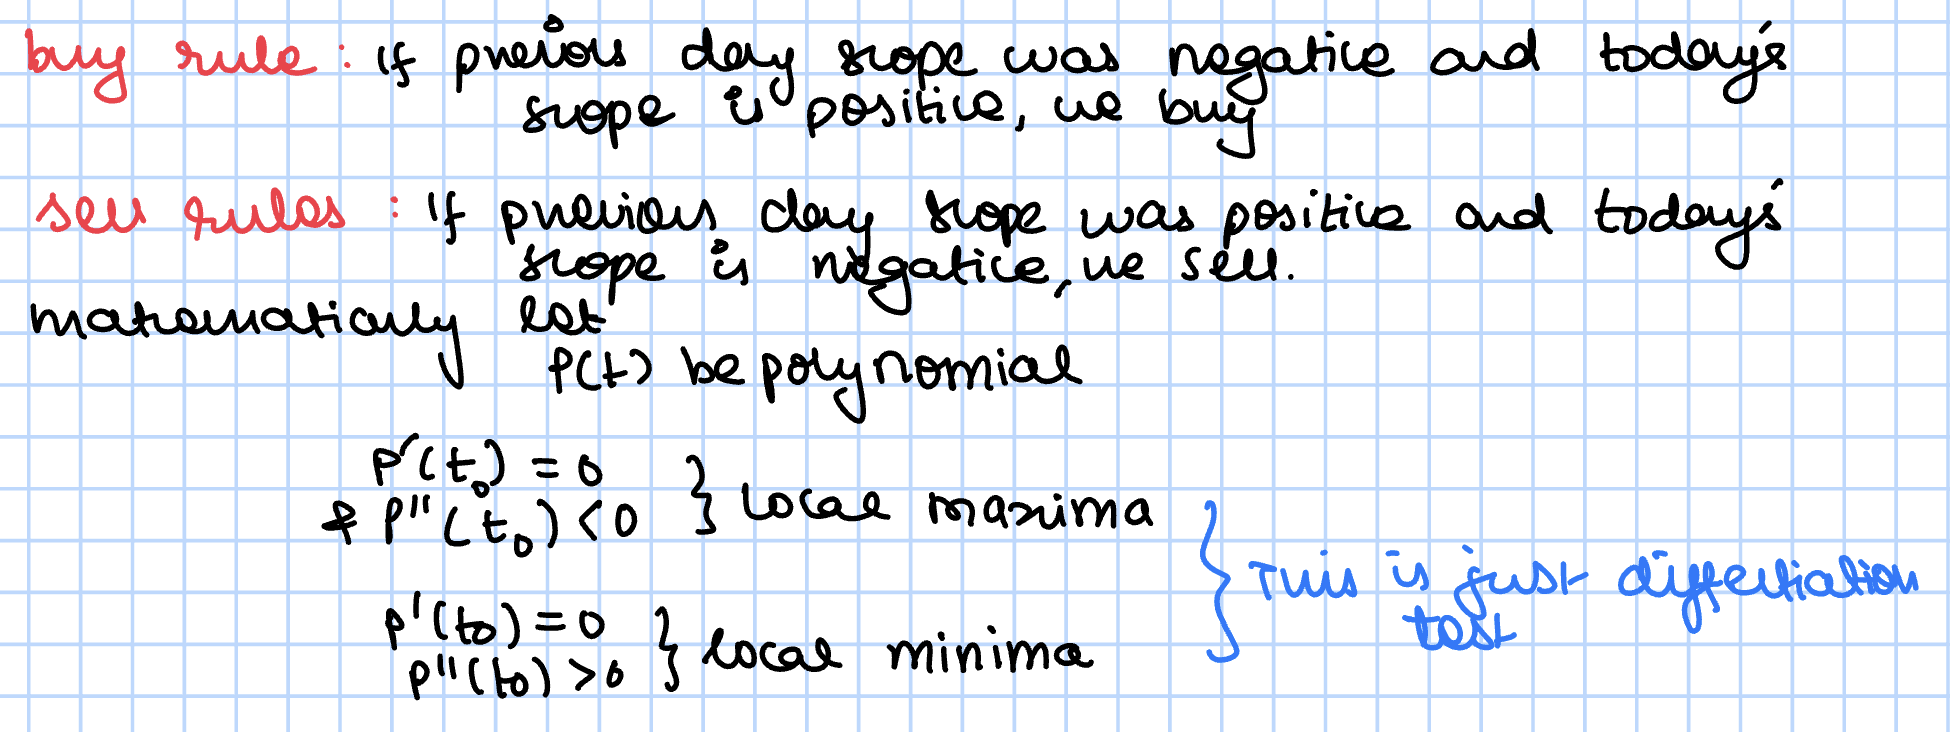 buy rule: if previous day slope was negative and today's
slope is positive, we buy
sell rules: if previous day slope was positive and today's
slope is negative, we sell.
mathematically let
P(t) be polynomial
P'(t₀) = 0
& P''(t₀) < 0 } local maxima
P'(t₀) = 0
P''(t₀) > 0 } local minima
} This is just differentiation
test